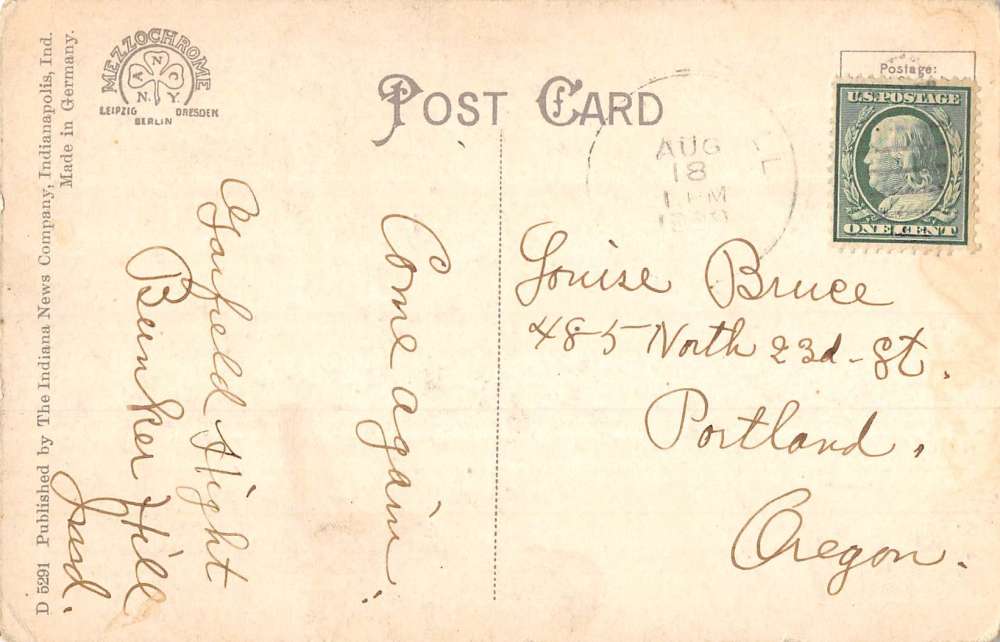 POST CARD
MEZZOCHROME
ANC
N. Y.
LEIPZIG DRESDEN
BERLIN
D 5291 Published by The Indiana News Company, Indianapolis, Ind.
Made in Germany.
Postage:
U.S. POSTAGE
ONE CENT
AUG
18
PM
Come again.
Garfield Hight
Bunker Hill
Louise Bruce
485 North 23d-St.
Portland,
Oregon.